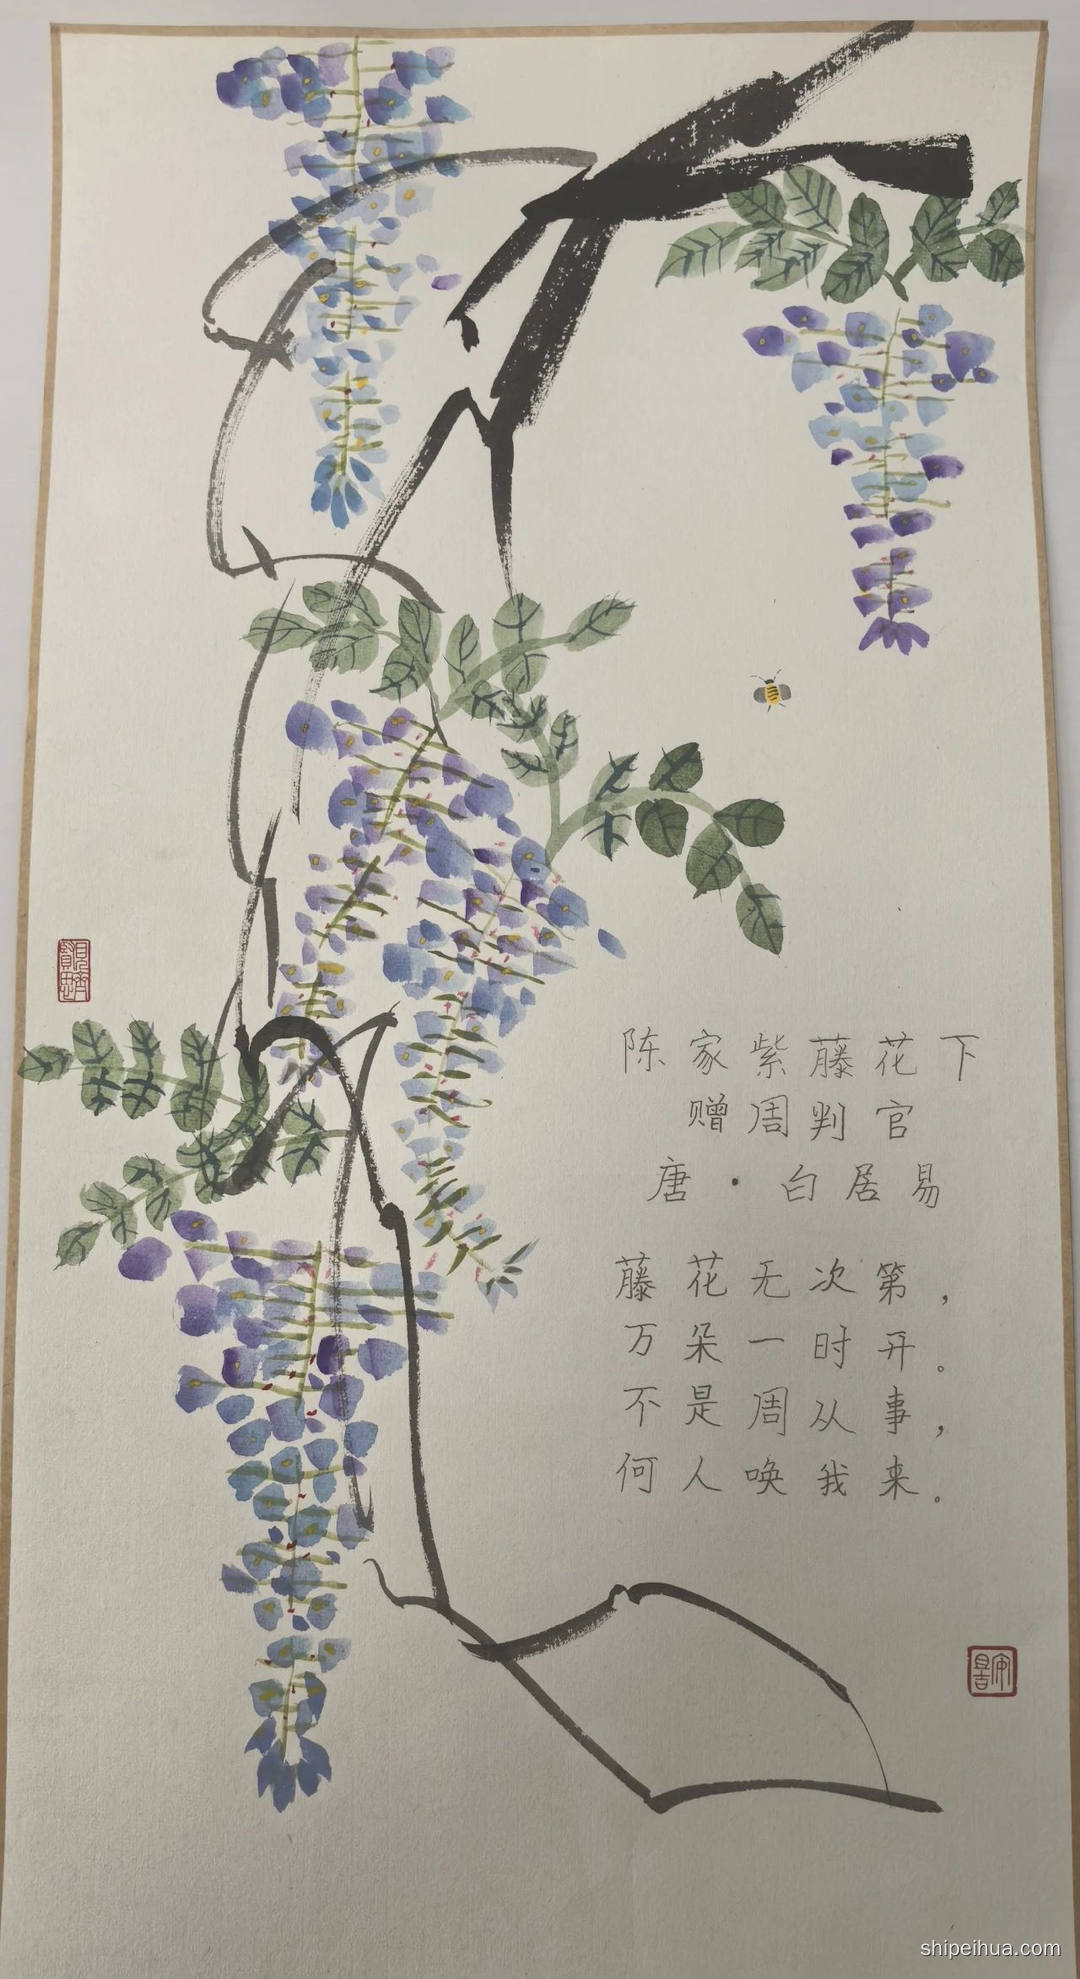 陈家紫藤花下
赠周判官
唐·白居易
藤花无次第，
万朵一时开。
不是周从事，
何人唤我来。
見齊
賢思
shipeihua.com